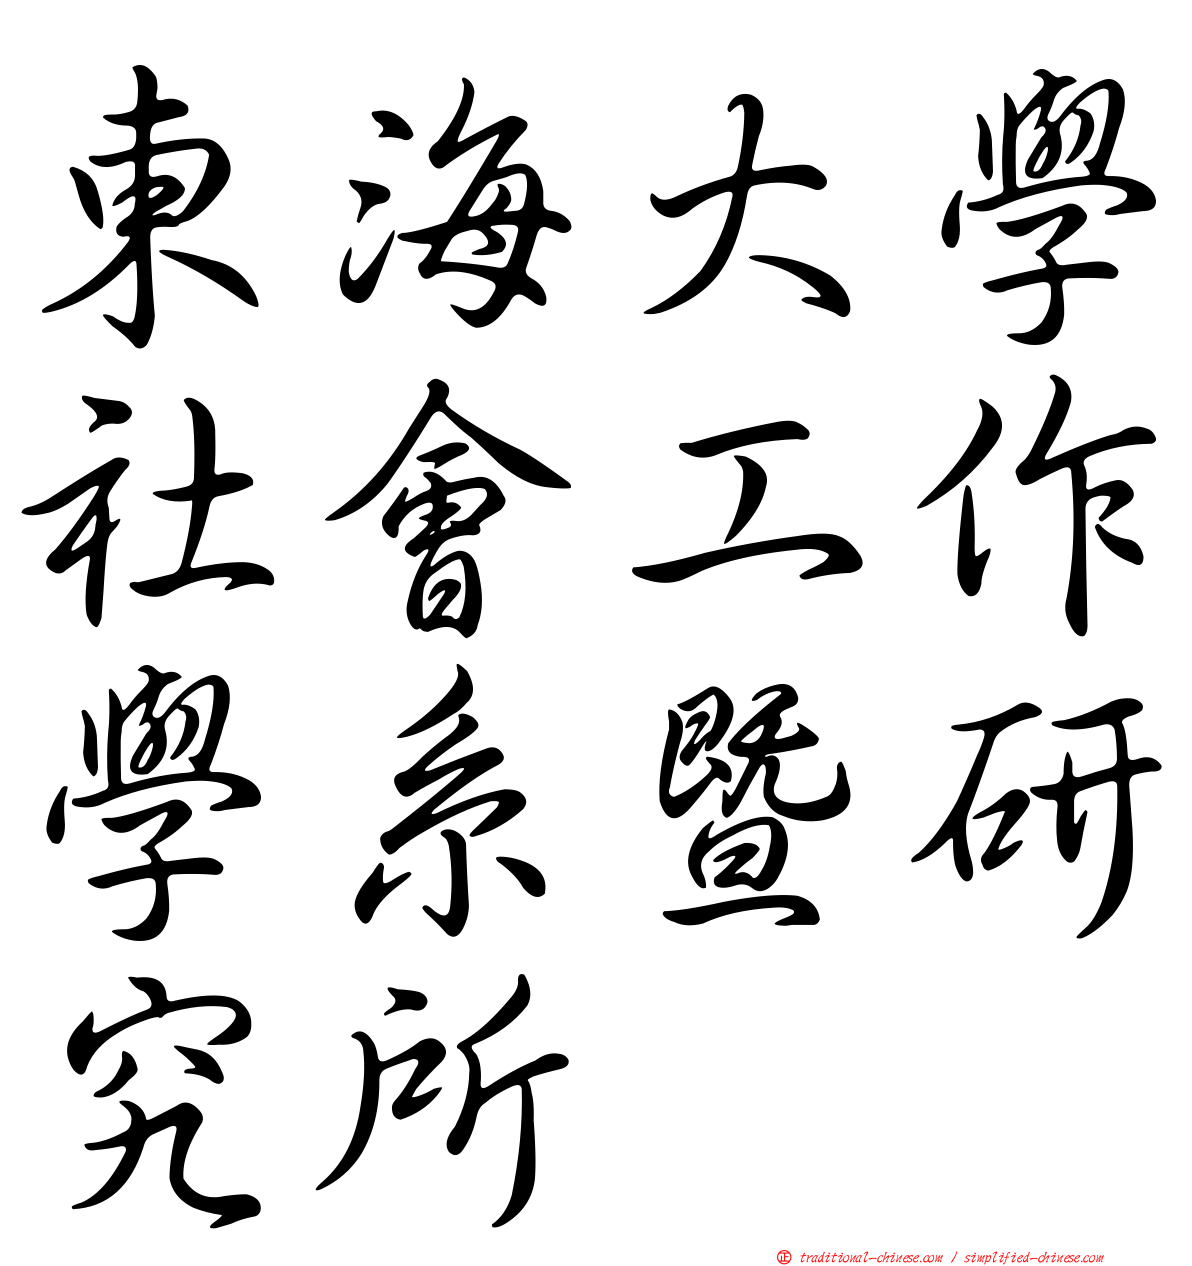 東海大學
社會工作
學系暨研
究所
正 traditional-chinese.com / simplified-chinese.com